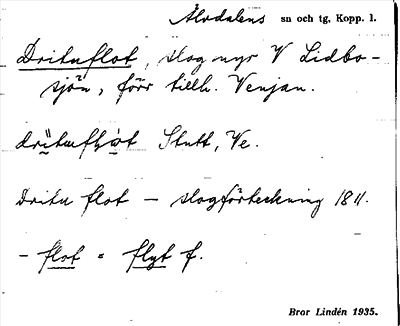 Älvdalens sn och tg, Kopp. l.
Drituflot, skog nyr V Lidbo-
sjön, förr tillh. Venjan.
Stutt, Ve.
Dritu flot – skogförteckning 1811.
– flot = flyt f.
Bror Lindén 1935.